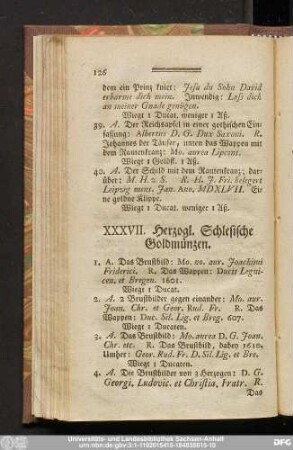 126
dem ein Prinz kniet: Jesu du Sohn David
erbarme dich mein. Inwendig: Laß dich
an meiner Gnade genügen.
Wiegt 1 Ducat. weniger 1 Aß.
39. A. Der Reichsapfel in einer gothischen Ein-
fassung: Albertus D. G. Dux Saxoni. R.
Johannes der Täufer, unten das Wappen mit
dem Rautenkranz: Mo. aurea Lipcens.
Wiegt 1 Goldfl. 1 Aß.
40. A. Der Schild mit dem Rautenkranz; dar-
über: M. H. z. S. R. H. J. Fri. belegert
Leipzig mens. Jan. Ano. MDXLVII. Ei-
ne goldne Klippe.
Wiegt 1 Ducat. weniger 1 Aß.
XXXVII. Herzogl. Schlesische
Goldmünzen.
1. A. Das Brustbild: Mo. no. aur. Joachimi
Friderici. R. Das Wappen: Ducis Legni-
cen. et Bregen. 1601.
Wiegt 1 Ducat.
2. A. 2 Brustbilder gegen einander: Mo. aur.
Joan. Chr. et Geor. Rud. Fr. R. Das
Wappen: Duc. Sil. Lig. et Breg. 607.
Wiegt 1 Ducaten.
3. A. Das Brustbild: Mo. aurea D. G. Joan.
Chr. etc. R. Das Brustbild, dabey 1610.
Umher: Geor. Rud. Fr. D. Sil. Lig. et Bre.
Wiegt 1 Ducaten.
4. A. Die Brustbilder von 3 Herzogen: D. G.
Georgi, Ludovic. et Christia, Fratr. R.
Das
Universitäts- und Landesbibliothek Sachsen-Anhalt
urn:nbn:de:gbv:3:1-1192015415-184635613-10